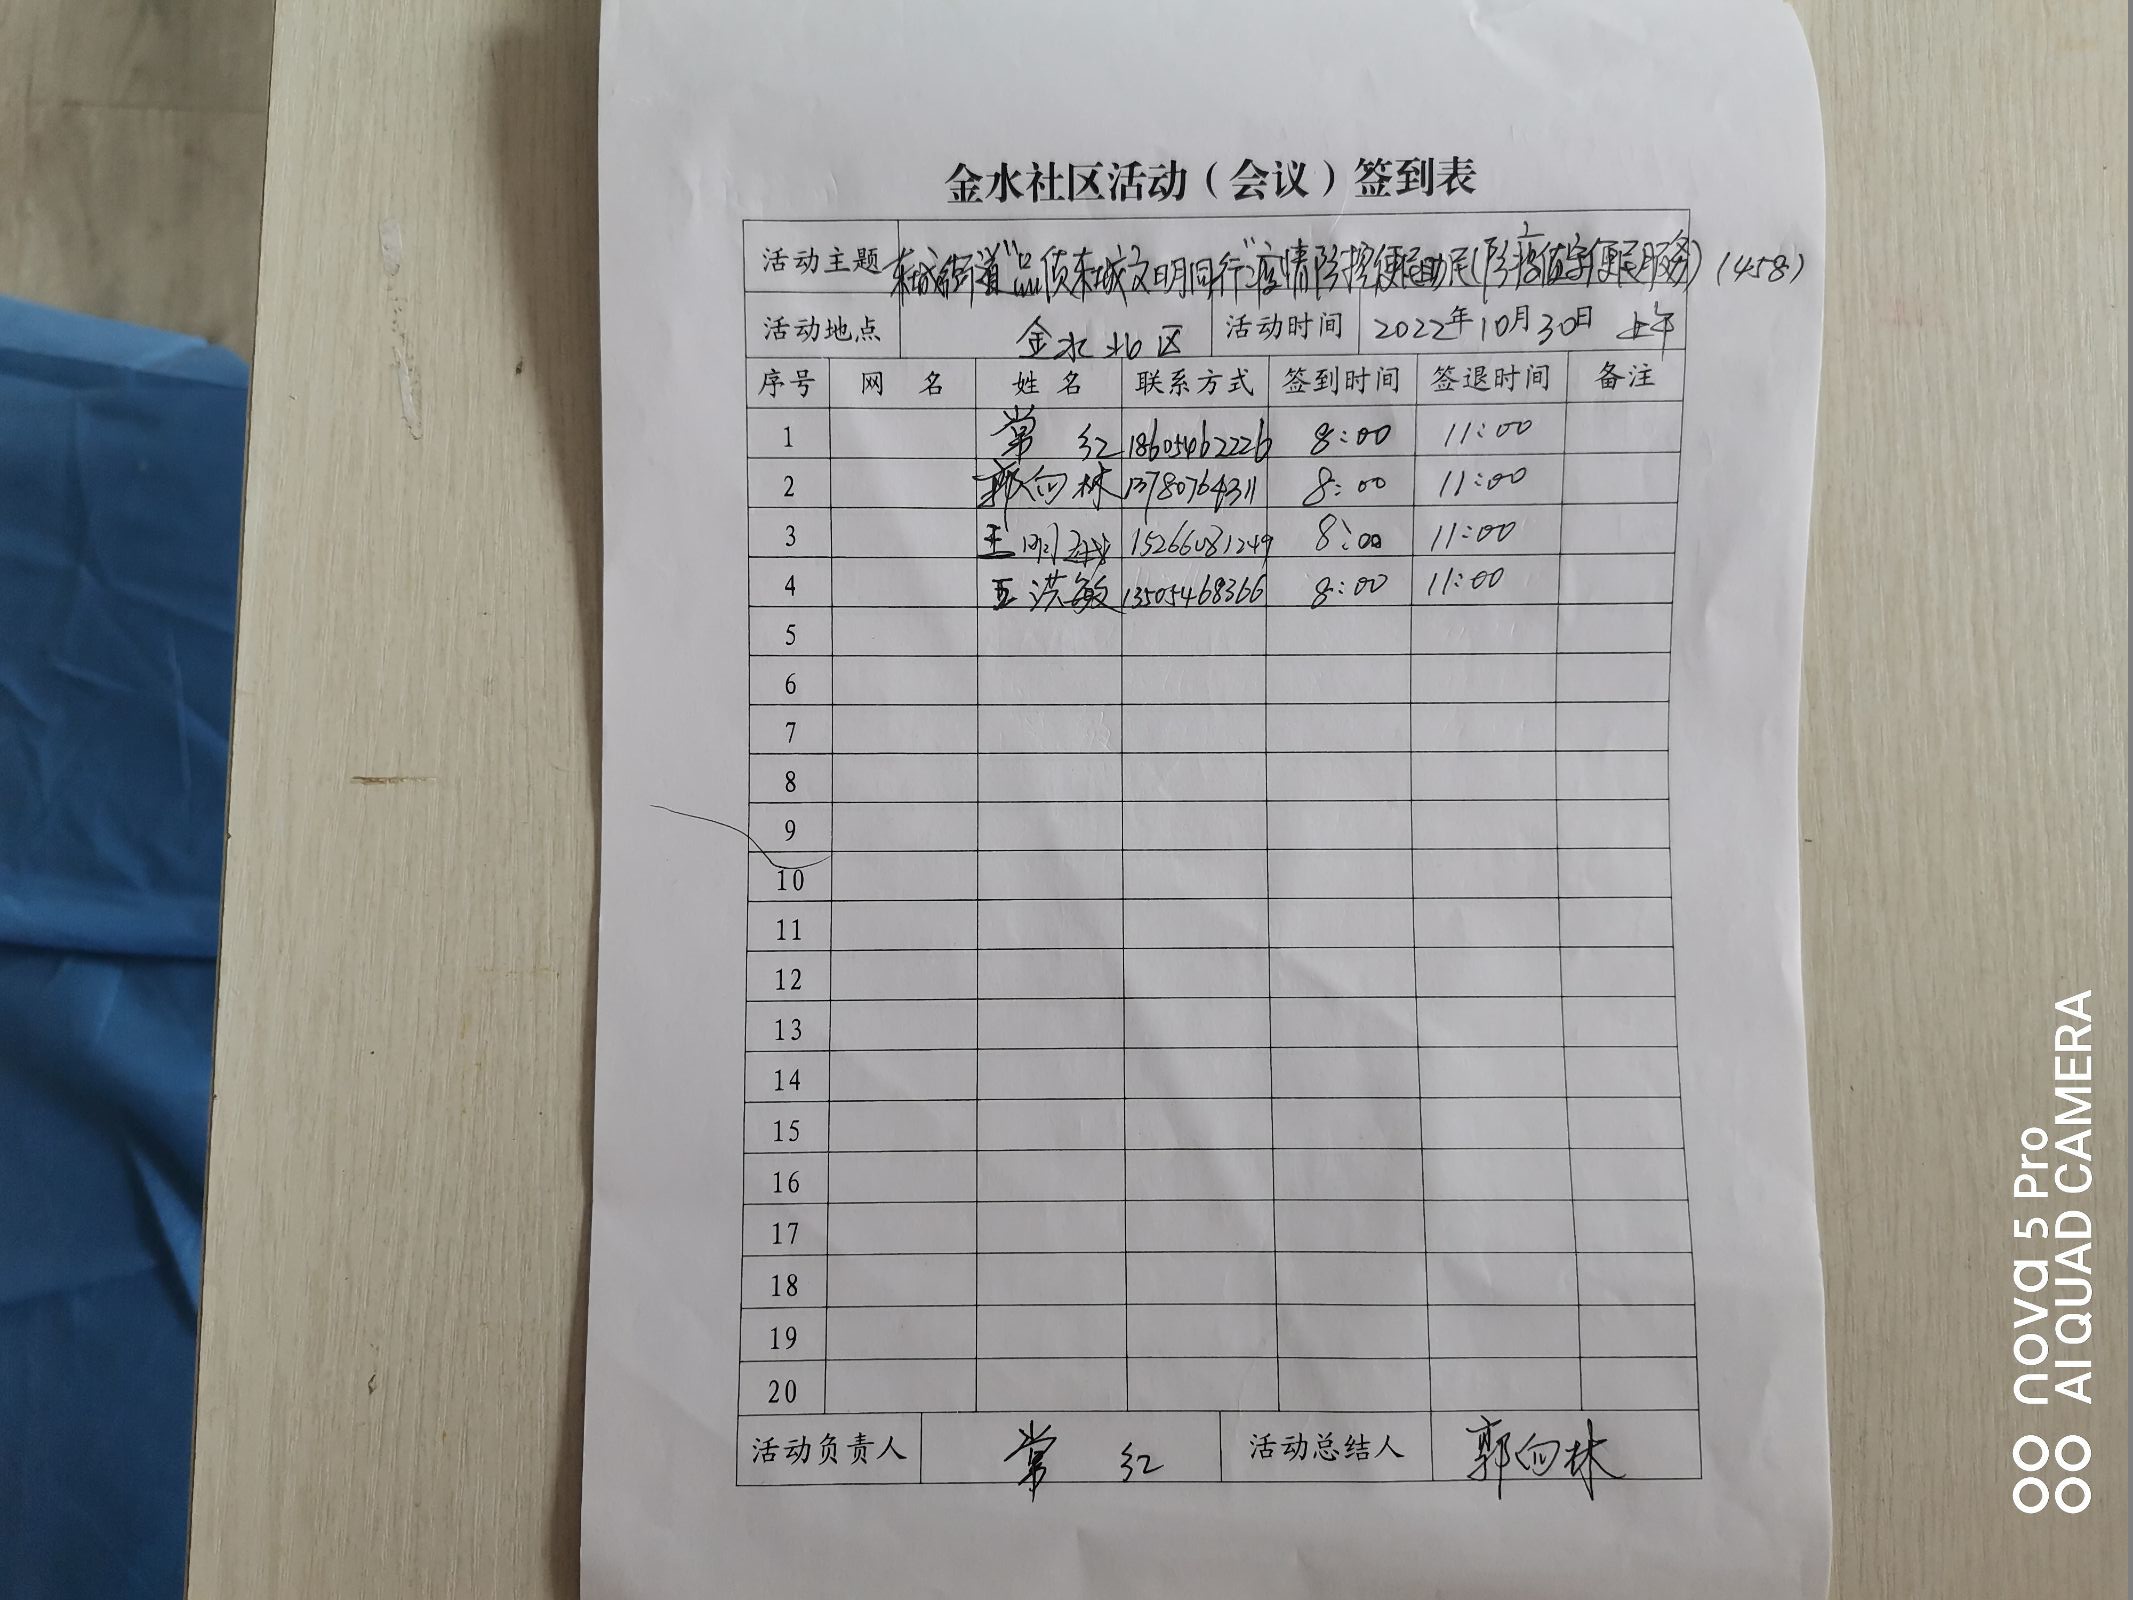 金水社区活动（会议）签到表
活动主题 东城街道“品质东城文明同行”疫情防控便民助民(防疫值守便民服务)(458)
活动地点 金水北区 活动时间 2022年10月30日 上午
序号 网 名 姓 名 联系方式 签到时间 签退时间 备注
1 常 红 18605462226 8:00 11:00
2 郭向林 13780764311 8:00 11:00
3 王明 15266081249 8:00 11:00
4 王洪敏 13505468366 8:00 11:00
5
6
7
8
9
10
11
12
13
14
15
16
17
18
19
20
活动负责人 常 红 活动总结人 郭向林
nova 5 Pro
AI QUAD CAMERA